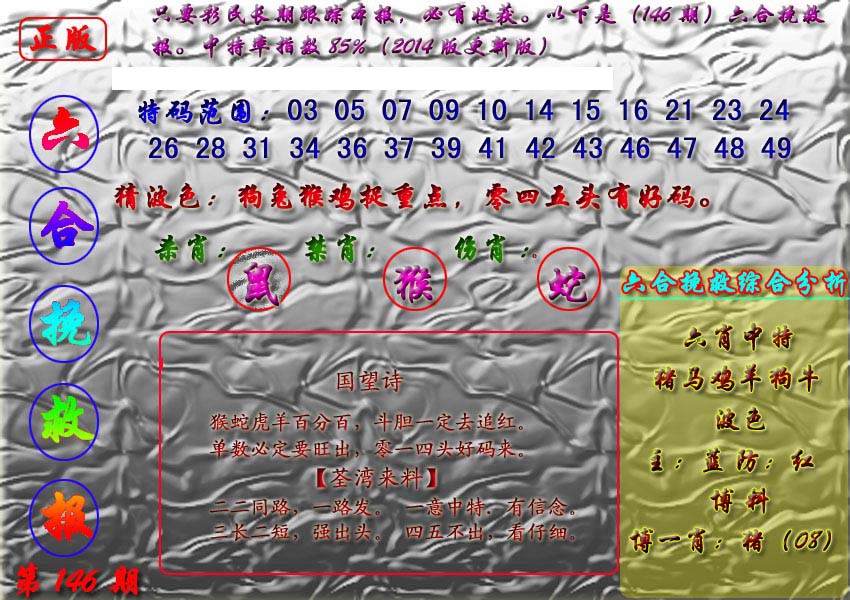 正版
只要彩民长期跟踪本报，必有收获。以下是（146期）六合挽救
报。中特率指数85%（2014版更新版）
六合挽救报
第146期
特码范围：03 05 07 09 10 14 15 16 21 23 24
26 28 31 34 36 37 39 41 42 43 46 47 48 49
猜波色：狗兔猴鸡捉重点，零四五头有好码。
杀肖：鼠 禁肖：猴 伤肖：蛇
国望诗
猴蛇虎羊百分百，斗胆一定去追红。
单数必定要旺出，零一四头好码来。
【荃湾来料】
二二同路，一路发。 一意中特，有信念。
三长二短，强出头。 四五不出，看仔细。
六合挽救综合分析
六肖中特
猪马鸡羊狗牛
波色
主：蓝防：红
博料
博一肖：猪（08）